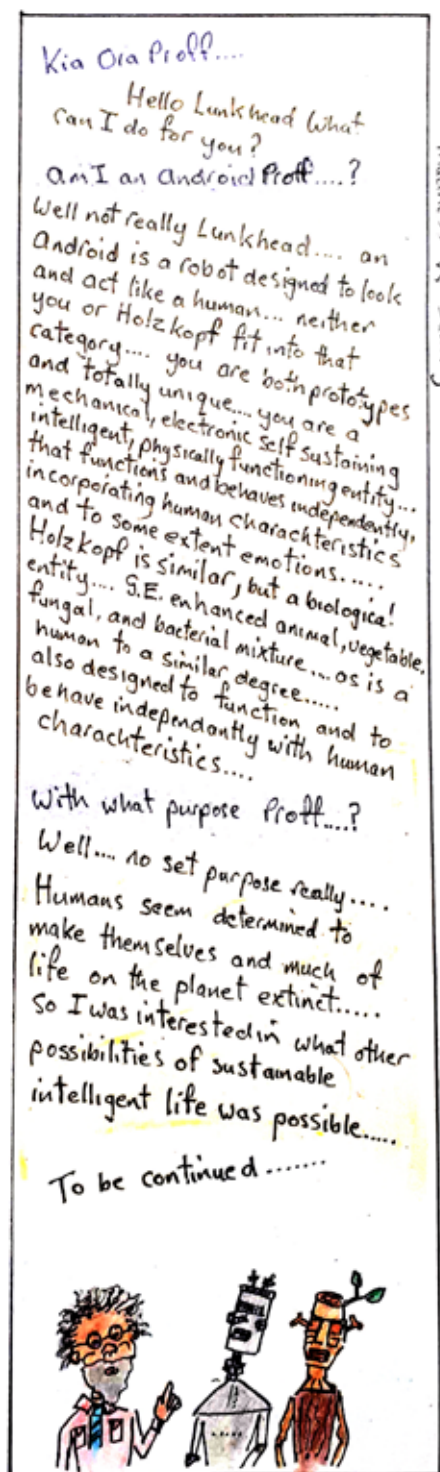 Kia Ora Proff....
Hello Lunkhead What
can I do for you?
am I an android Proff....?
Well not really Lunkhead.... an
Android is a robot designed to look
and act like a human... neither
you or Holzkopf fit into that
category.... you are both prototypes
and totally unique.... you are a
mechanical, electronic self sustaining
intelligent, physically functioning entity...
that functions and behaves independently,
incorporating human charachteristics
and to some extent emotions.....
Holzkopf is similar, but a biological
entity.... S.E. enhanced animal, vegetable,
fungal, and bacterial mixture.... as is a
human to a similar degree.....
also designed to function and to
behave independantly with human
charachteristics....
With what purpose Proff....?
Well.... no set purpose really....
Humans seem determined to
make themselves and much of
life on the planet extinct.....
So I was interested in what other
possibilities of sustainable
intelligent life was possible.....
To be continued.......